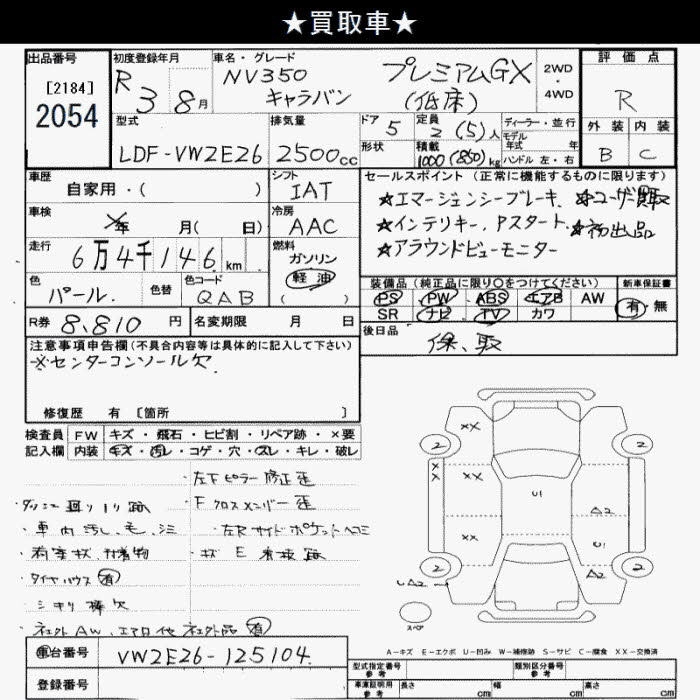 ★買取車★
出品番号
[2184]
2054
初度登録年月
R 3 8月
車名・グレード
NV350
キャラバン
プレミアムGX
(低床)
2WD
・
4WD
評価点
R
外装 内装
B C
型式
LDF-VW2E26
排気量
2500cc
ドア 5
形状
定員
2(5)人
積載
1000(850)kg
ディーラー・並行
モデル
年式 年
ハンドル 左・右
車歴
自家用・( )
シフト
IAT
車検
年 月( 日)
冷房
AAC
走行
6万4千146km
燃料
ガソリン
軽油
( )
色
パール.
色替
色コード
QAB
R券 8,810円
名変期限 月 日
セールスポイント(正常に機能するものに限ります)
☆エマージェンシーブレーキ、☆ユーザー買取
☆インテリキー、Pスタート、☆初出品
☆アラウンドビューモニター
装備品(純正品に限り○をつけてください)
PS PW ABS エアB AW
SR ナビ TV カワ
新車保証書
有・無
後日品
保、取
注意事項申告欄(不具合内容等は具体的に記入して下さい)
※センターコンソール欠.
修復歴 有 [箇所 ]
検査員 FW キズ・飛石・ヒビ割・リペア跡・×要
記入欄 内装 キズ・汚レ・コゲ・穴・スレ・キレ・破レ
・左下ピラー修正歪
・Fクロスメンバー歪
・左Rサイドポケットヘコミ
・車内汚レ、毛、シミ
・タイヤハウス有
・社外AW、エアロ他社外品有
車台番号 VW2E26-125104.
登録番号
2
2
2
2
××
×
×
××
××
U1
A2
U1
A2
UA2
スペア
A-キズ E-エクボ U-凹み W-補修跡 S-サビ C-腐食 XX-交換済
型式指定番号
参考
類別区分番号
参考
車庫証明用
参考
長さ cm
幅 cm
高さ cm